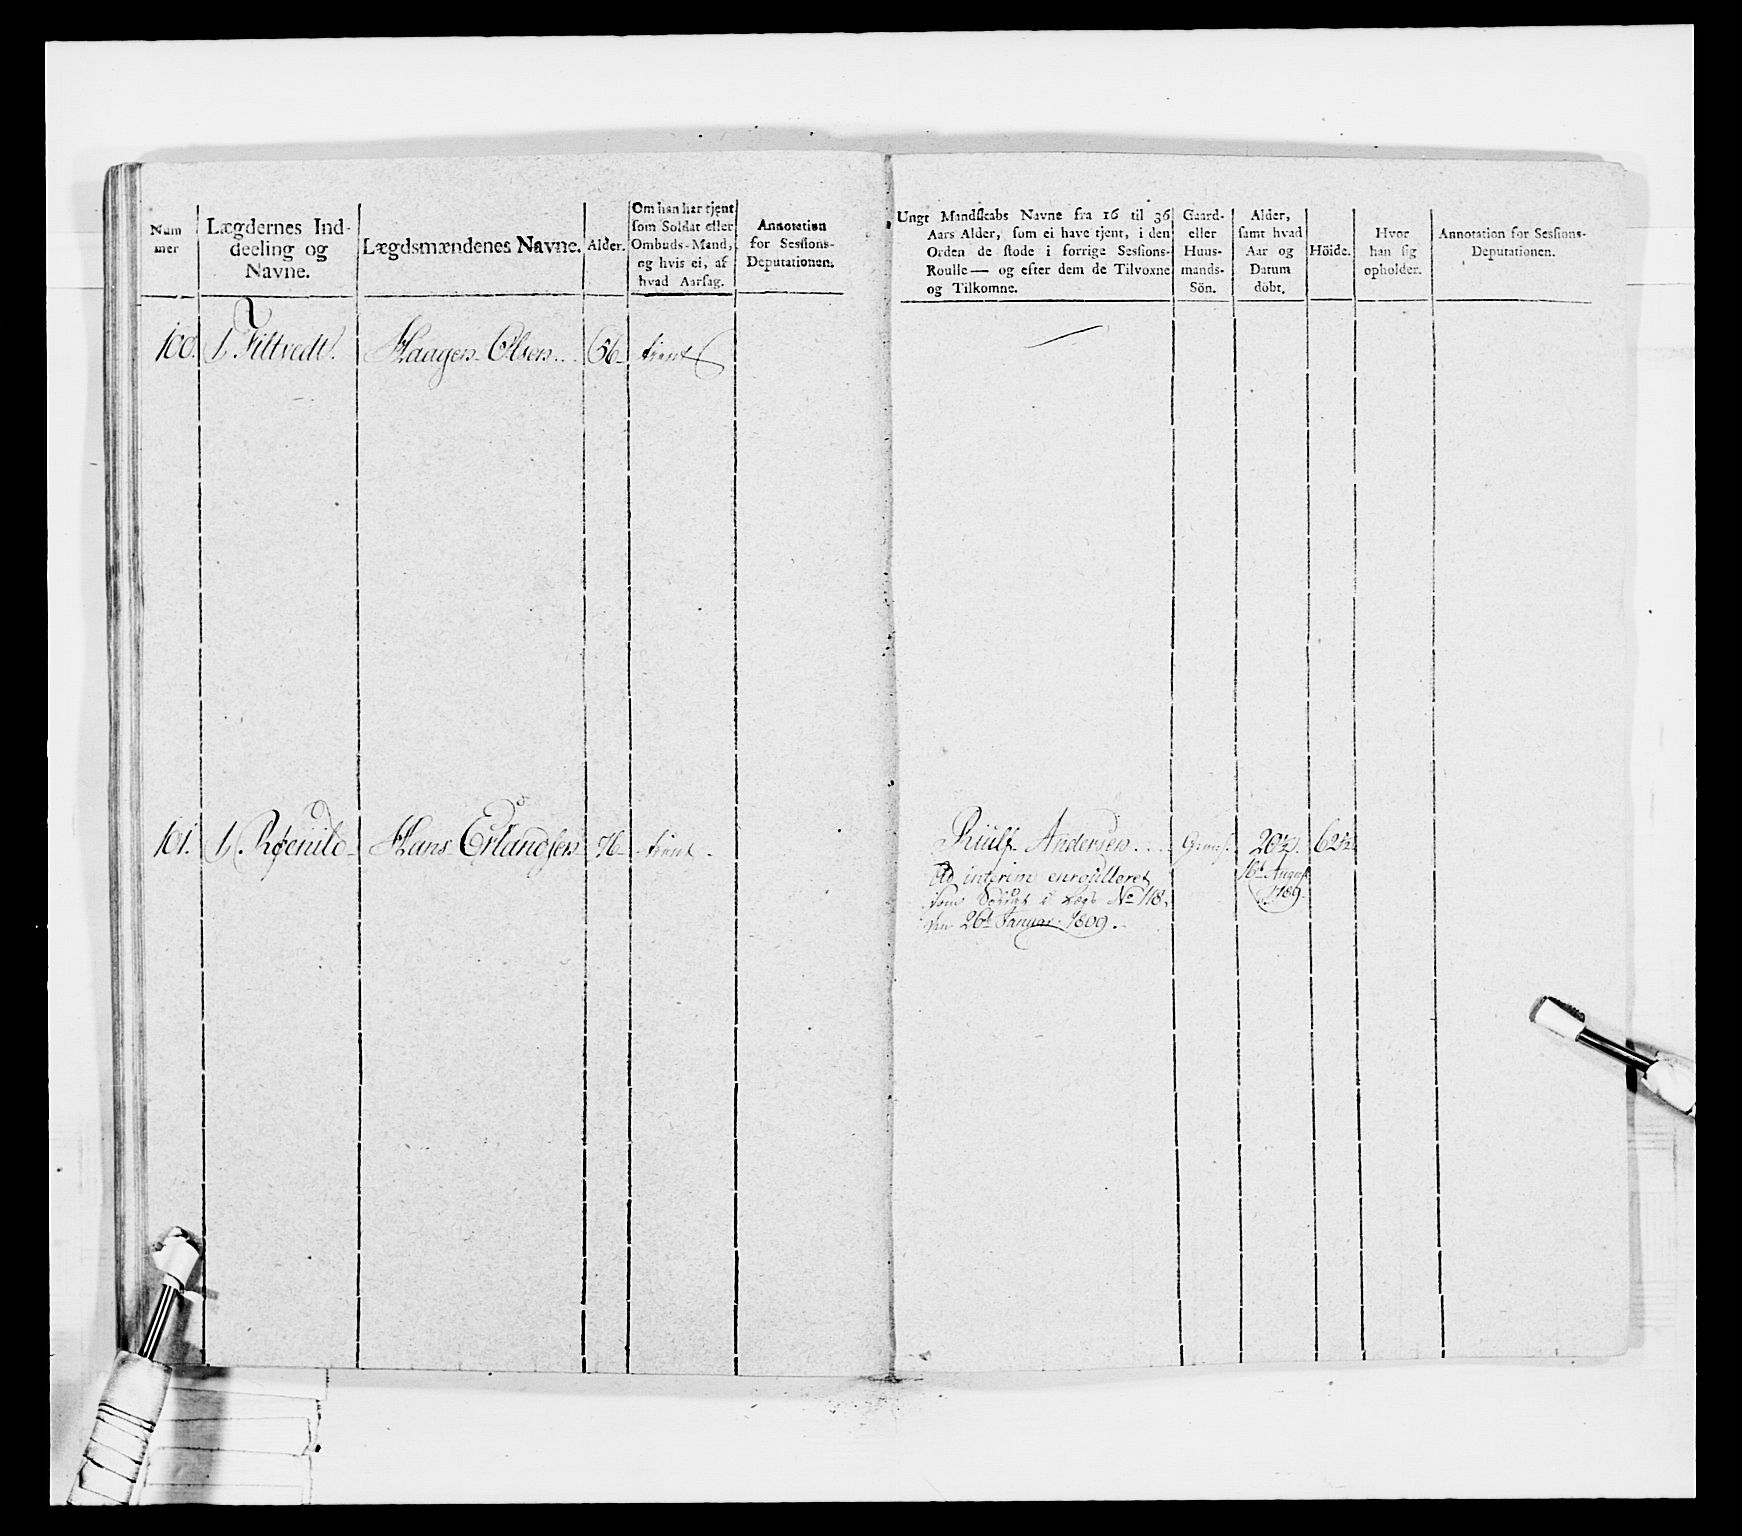 Num
mer
Lægdernes Ind-
deeling og
Navne.
Lægdsmændenes Navne.
Alder.
Om han har tjent
som Soldat eller
Ombuds-Mand,
og hvis ei, af
hvad Aarsag.
Annotation
for Sessions-
Deputationen.
100. 1 Filtvedt. Haagen Olsen 66 tient
101. 1 Hans Erlandsen 76 tient
Ungt Mandskabs Navne fra 16 til 36
Aars Alder, som ei have tjent, i den
Orden de stode i forrige Sessions-
Roulle — og efter dem de Tilvoxne
og Tilkomne.
Gaard-
eller
Huus-
mands-
Sön.
Alder,
samt hvad
Aar og
Datum
döbt.
Höide.
Hvor
han sig
opholder.
Annotation for Sessions-
Deputationen.
Andersen. 20½. 62½
Ad interim enroulleret 16t August
som i Lægd No 118, 1789.
den 26t Januar 1809.